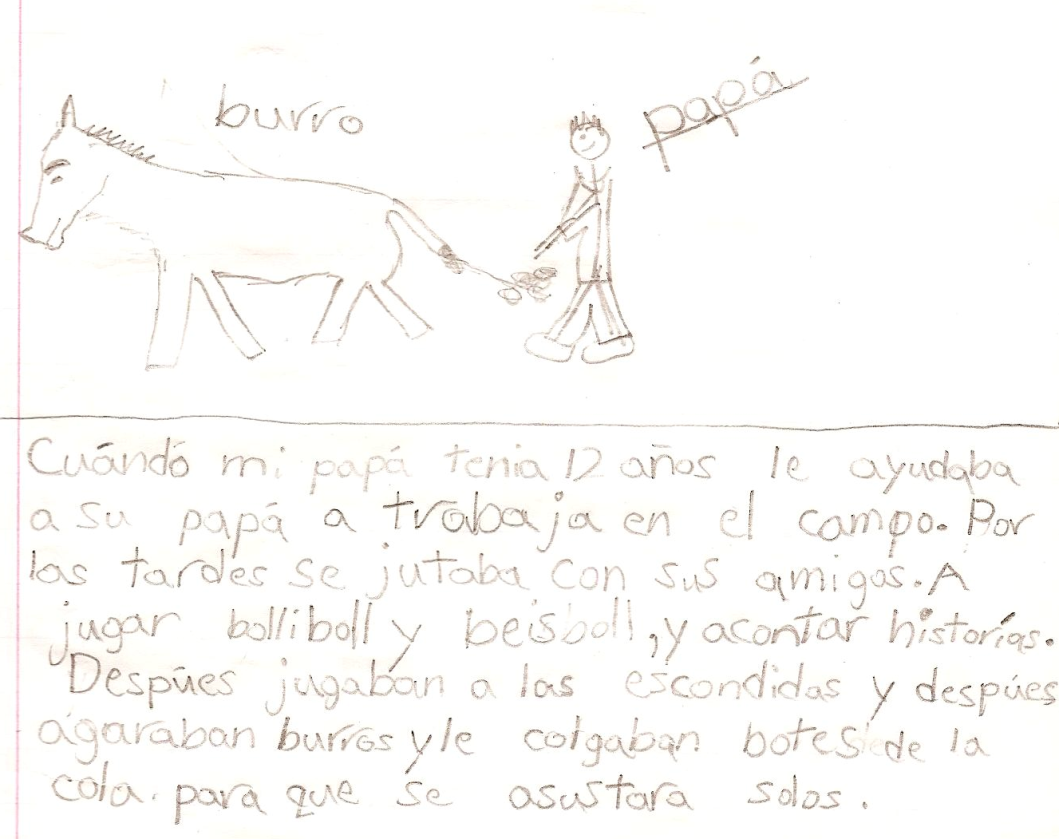 burro
papá
Cuándo mi papá tenia 12 años le ayudaba
a su papá a trabaja en el campo. Por
las tardes se jutaba con sus amigos. A
jugar bolliboll y beisboll, y acontar historías.
Despúes jugaban a las escondidas y despúes
agaraban burros y le colgaban botes de la
cola. para que se asustara solos.